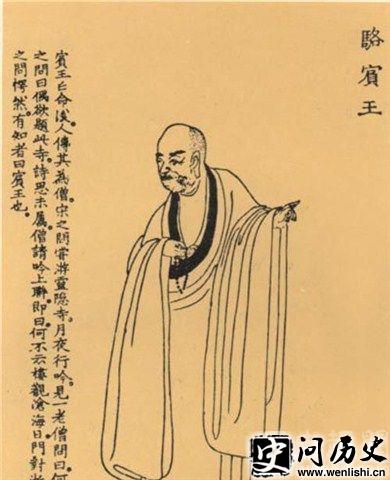 駱賓王
賓王亡命後人傳其為僧。宋之問嘗游靈隱寺。月夜行吟。見一老僧問曰。何
之問曰。偶欲題此寺。詩思未屬。僧請吟上聯。即曰。何不云。樓觀滄海日。門對
之問愕然。有知者曰。賓王也。
史问历史
www.wenlishi.cn